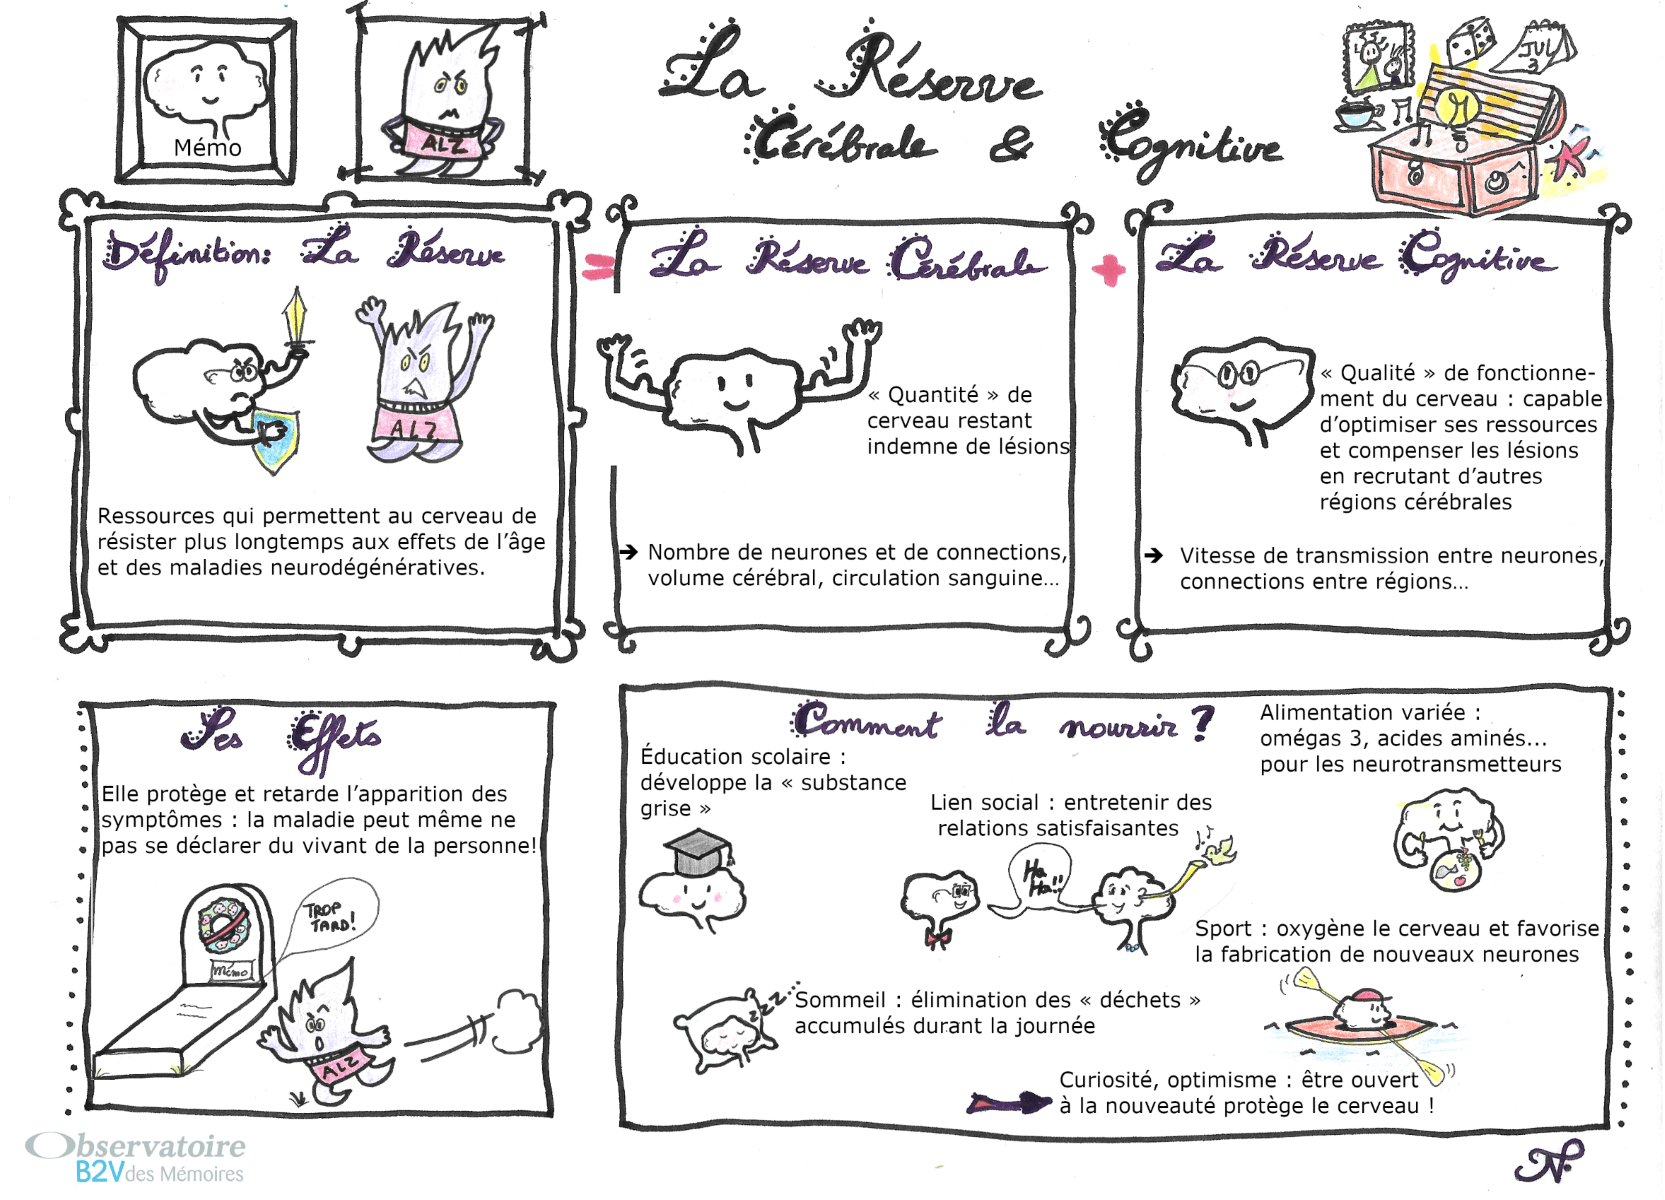 Mémo
ALZ
La Réserve
Cérébrale & Cognitive
JUL
3
Définition: La Réserve
ALZ
Ressources qui permettent au cerveau de
résister plus longtemps aux effets de l'âge
et des maladies neurodégénératives.
=
La Réserve Cérébrale
« Quantité » de
cerveau restant
indemne de lésions
➔ Nombre de neurones et de connections,
volume cérébral, circulation sanguine...
+
La Réserve Cognitive
« Qualité » de fonctionne-
ment du cerveau : capable
d'optimiser ses ressources
et compenser les lésions
en recrutant d'autres
régions cérébrales
➔ Vitesse de transmission entre neurones,
connections entre régions...
Ses Effets
Elle protège et retarde l'apparition des
symptômes : la maladie peut même ne
pas se déclarer du vivant de la personne!
TROP
TARD!
Mémo
ALZ
Comment la nourrir ?
Éducation scolaire :
développe la « substance
grise »
Lien social : entretenir des
relations satisfaisantes
Ha
Ha!!
Alimentation variée :
omégas 3, acides aminés...
pour les neurotransmetteurs
Sport : oxygène le cerveau et favorise
la fabrication de nouveaux neurones
zzz
Sommeil : élimination des « déchets »
accumulés durant la journée
Curiosité, optimisme : être ouvert
à la nouveauté protège le cerveau !
Observatoire
B2V des Mémoires
N.